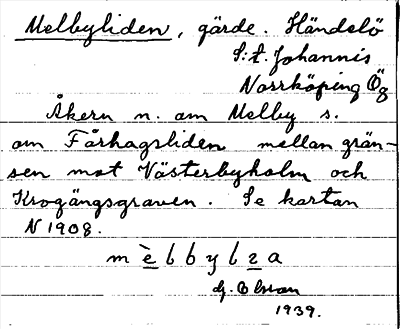 Melbyliden, gärde. Händelö
S:t. Johannis
Norrköping Ög
Åkern n. om Melby s.
om Fårhagsliden mellan grän-
sen mot Västerbyholm och
Krogängsgraven. Se kartan
N 1908.
m è l b y l z a
G. Olsson
1939.